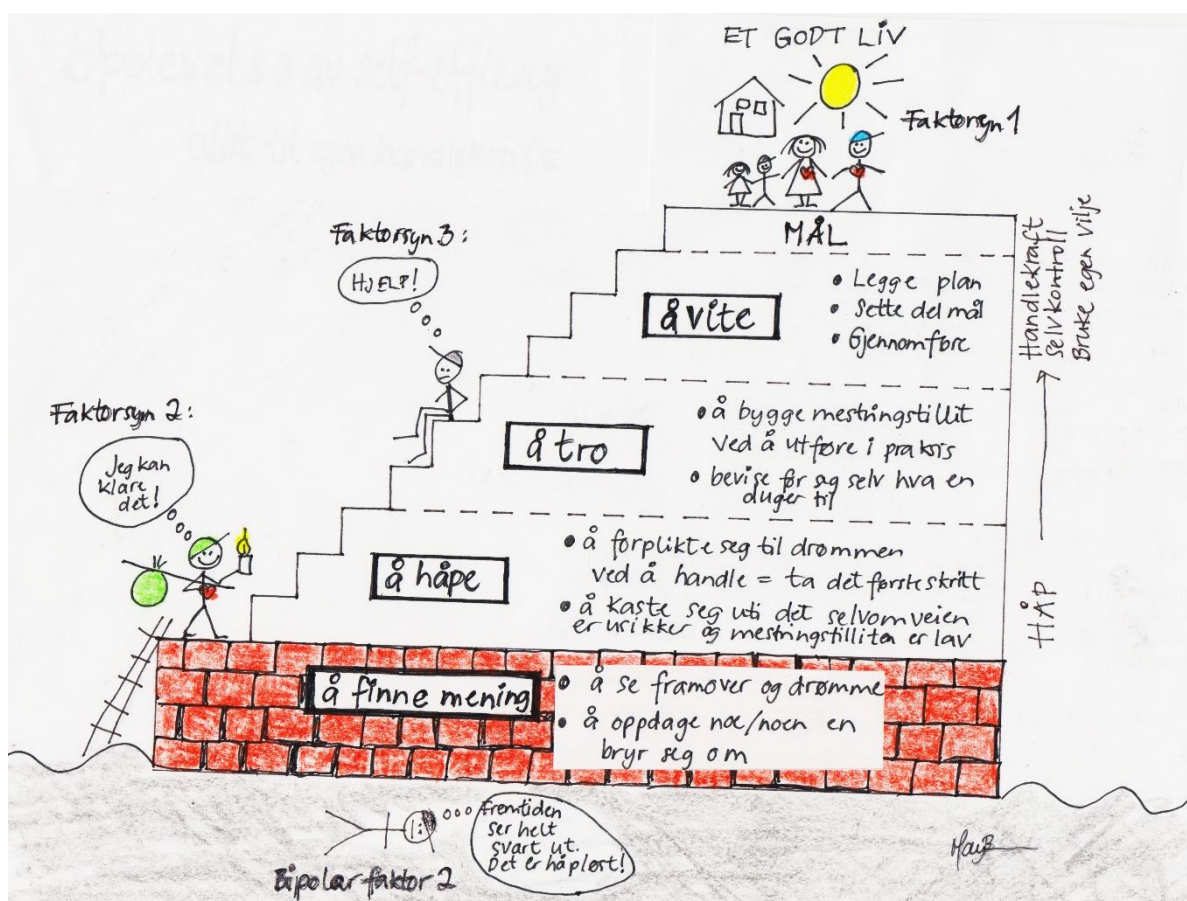 ET GODT LIV
Faktorsyn 1
MÅL
Faktorsyn 3:
HJELP!
å vite
• Legge plan
• Sette del mål
• Gjennomføre
Handlekraft
selvkontroll
Bruke egen vilje
Faktorsyn 2:
Jeg kan
klare
det!
å tro
• å bygge mestringstillit
ved å utføre i praksis
• bevise før seg selv hva en
duger til
å håpe
• å forplikte seg til drømmen
ved å handle = ta det første skritt
• å kaste seg uti det selvom veien
er usikker og mestringstilliten er lav
HÅP
å finne mening
• å se framover og drømme
• å oppdage noe/noen en
bryr seg om
Fremtiden
ser helt
svart ut.
Det er håpløst!
Bipolar faktor 2